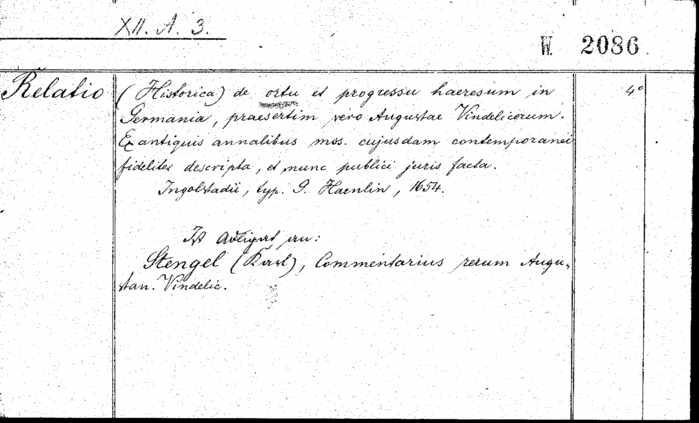 XII. A. 3.
W. 2086
Relatio (Historica) de ortu et progressu haeresum in 4°
Germania, praesertim vero Augustae Vindelicorum.
Ex antiquis annalibus mss. cujusdam contemporanei
fideliter descripta, et nunc publici juris facta.
Ingolstadii, typ. G. Haenlin, 1654.
Ist adligat an:
Stengel (Karl), Commentarius rerum Augu-
stan. Vindelic.